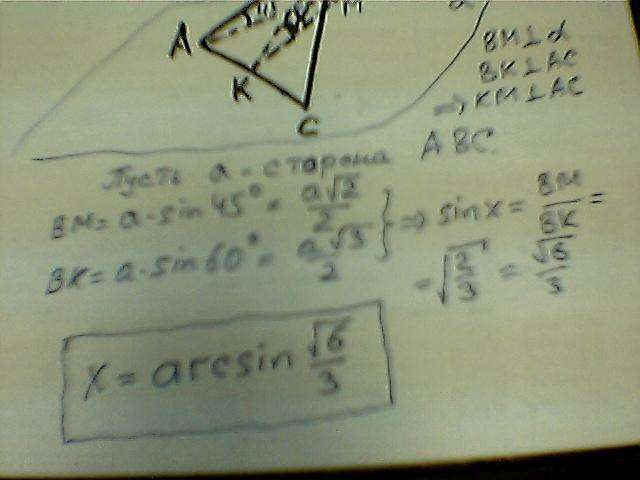 M
A
K
C
BM ⊥ α
BK ⊥ AC
⇒ KM ⊥ AC
ABC
Пусть a - сторона
BM = a · sin 45° = a√2/2
BK = a · sin 60° = a√3/2
} ⇒ sin x = BM/BK =
= √(2/3) = √6/3
x = arcsin √6/3